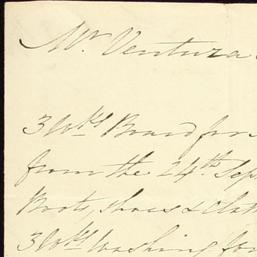 Mr. Ventura
3 Wks Board for
from the 24th Sep
Boots, shoes & Cloth
3 Wks washing for